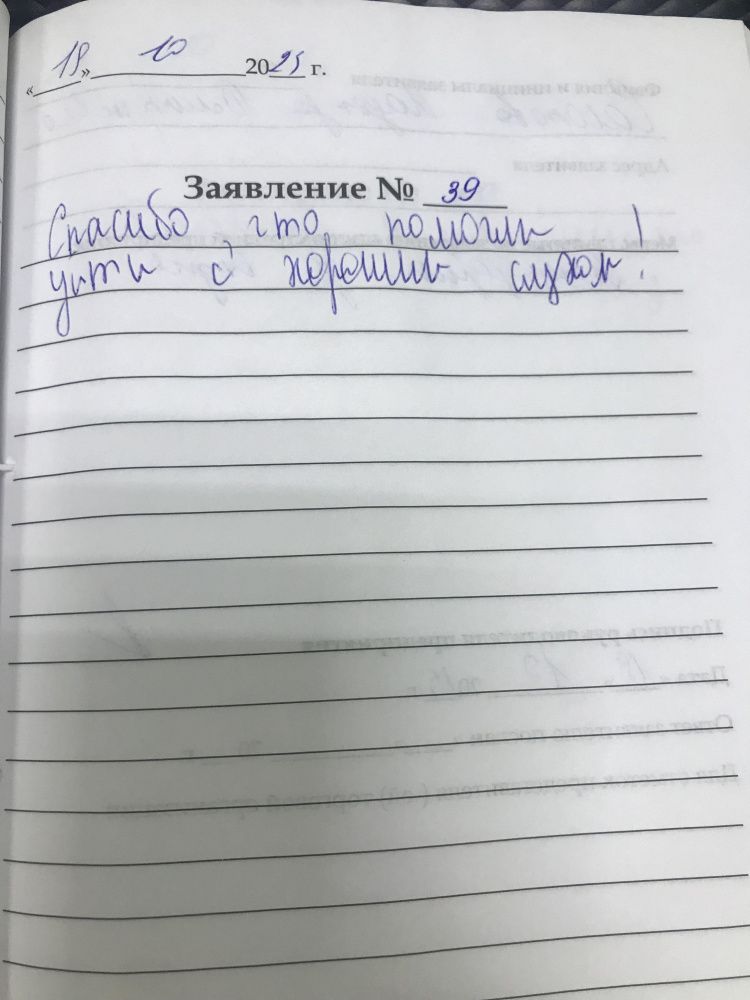 «18» 10 2025 г.
Заявление № 39
Спасибо, что помогли
уйти с хорошим слухом!